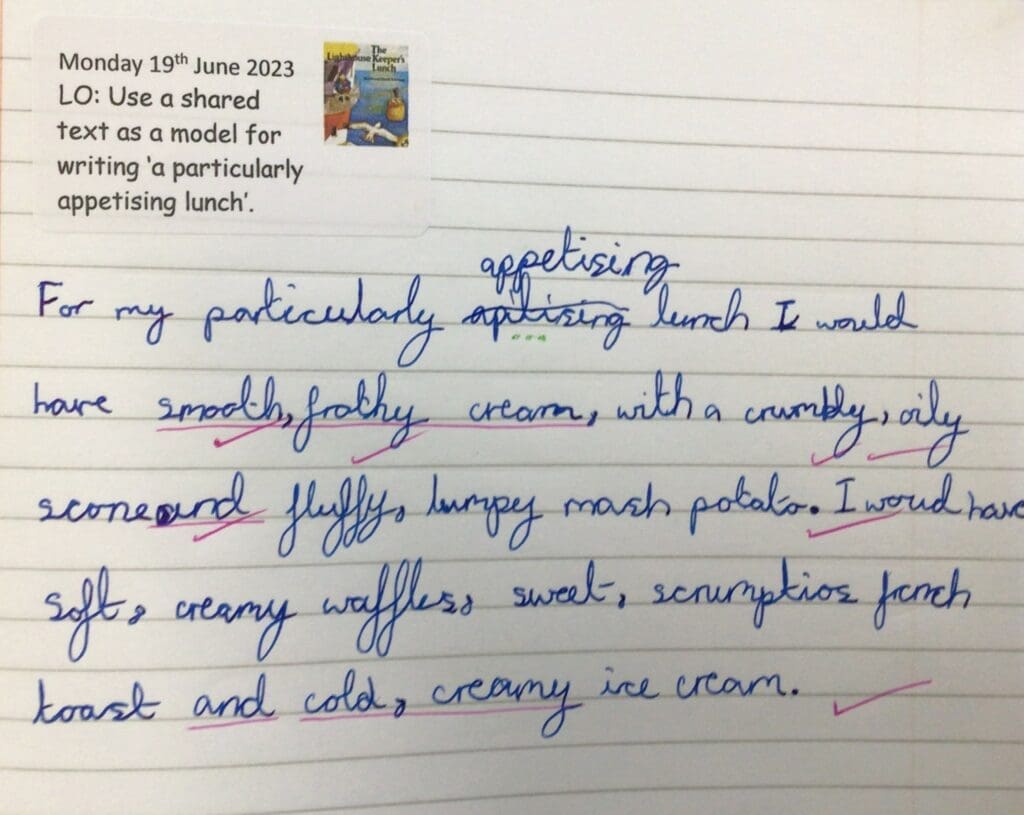 Monday 19th June 2023
LO: Use a shared
text as a model for
writing 'a particularly
appetising lunch'.
The
Lighthouse Keeper's
Lunch
appetising
For my particularly apitising lunch I would
have smooth, frothy cream, with a crumbly, oily
scone and fluffy, lumpy mash potato. I woud have
soft, creamy waffles, sweet, scrumptios french
toast and cold, creamy ice cream.